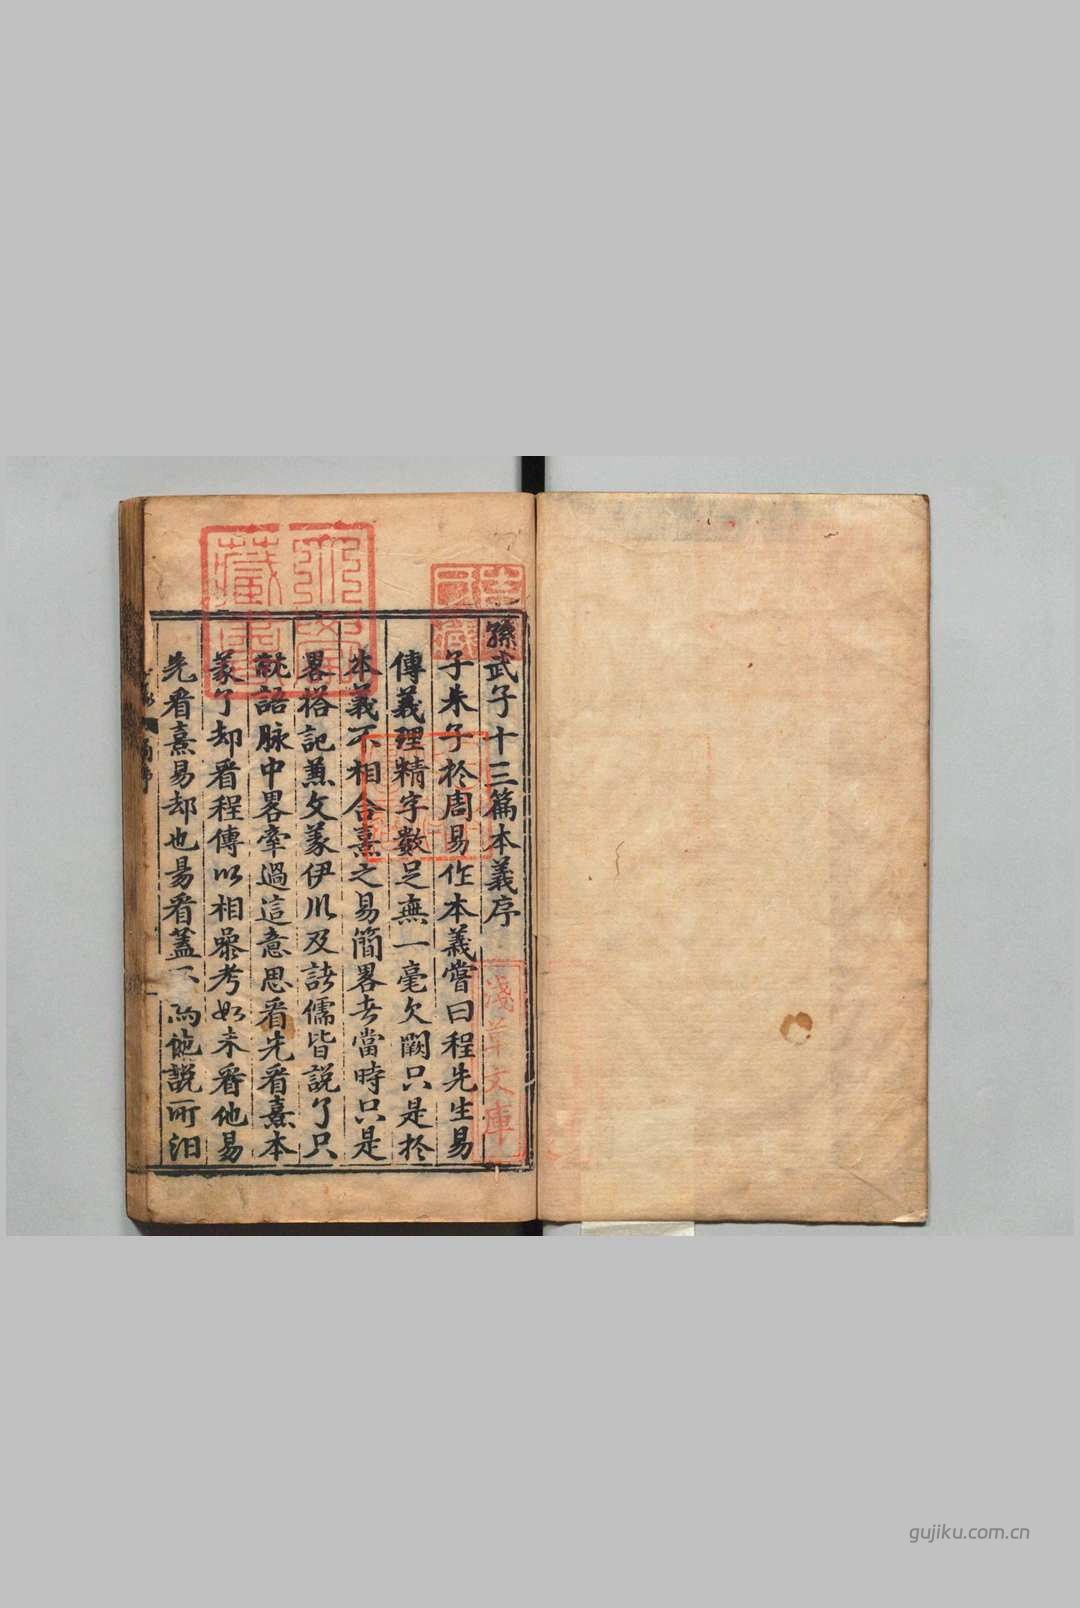 孫武子十三篇本義序
子朱子於周易作本義嘗曰程先生易
傳義理精字數足無一毫欠闕只是於
本義不相合熹之易簡畧者當時只是
畧搭記兼文義伊川及諸儒皆說了只
就語脉中畧牽過這意思看先看熹本
義了却看程傳以相參考如未看他易
先看熹易却也易看蓋不為他說所汩
淺草文庫
藏書
gujiku.com.cn